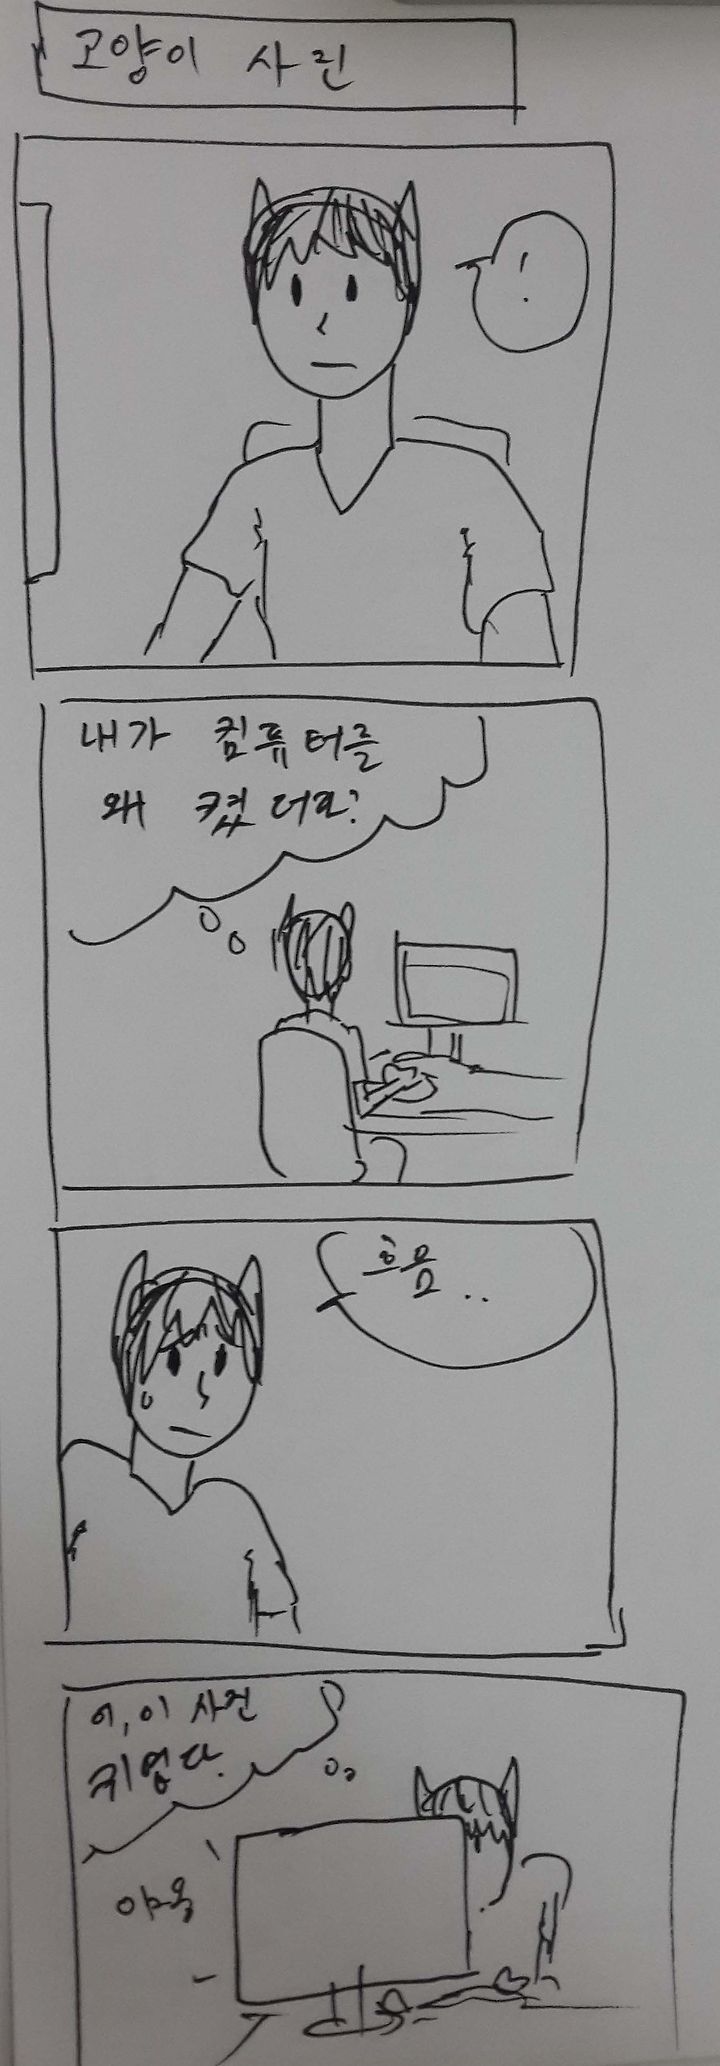 고양이 사린
!
내가 컴퓨터를
왜 켰더라?
흐음..
어, 이 사진
귀엽다.
야옹